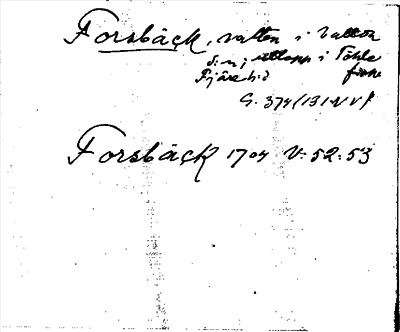 Forsbäck, vatten i Valtor
s:n; utlopp i Töhle
Fjäre hd
G. 374 (131 V V)
Forsbäck 1704 V: 52: 53